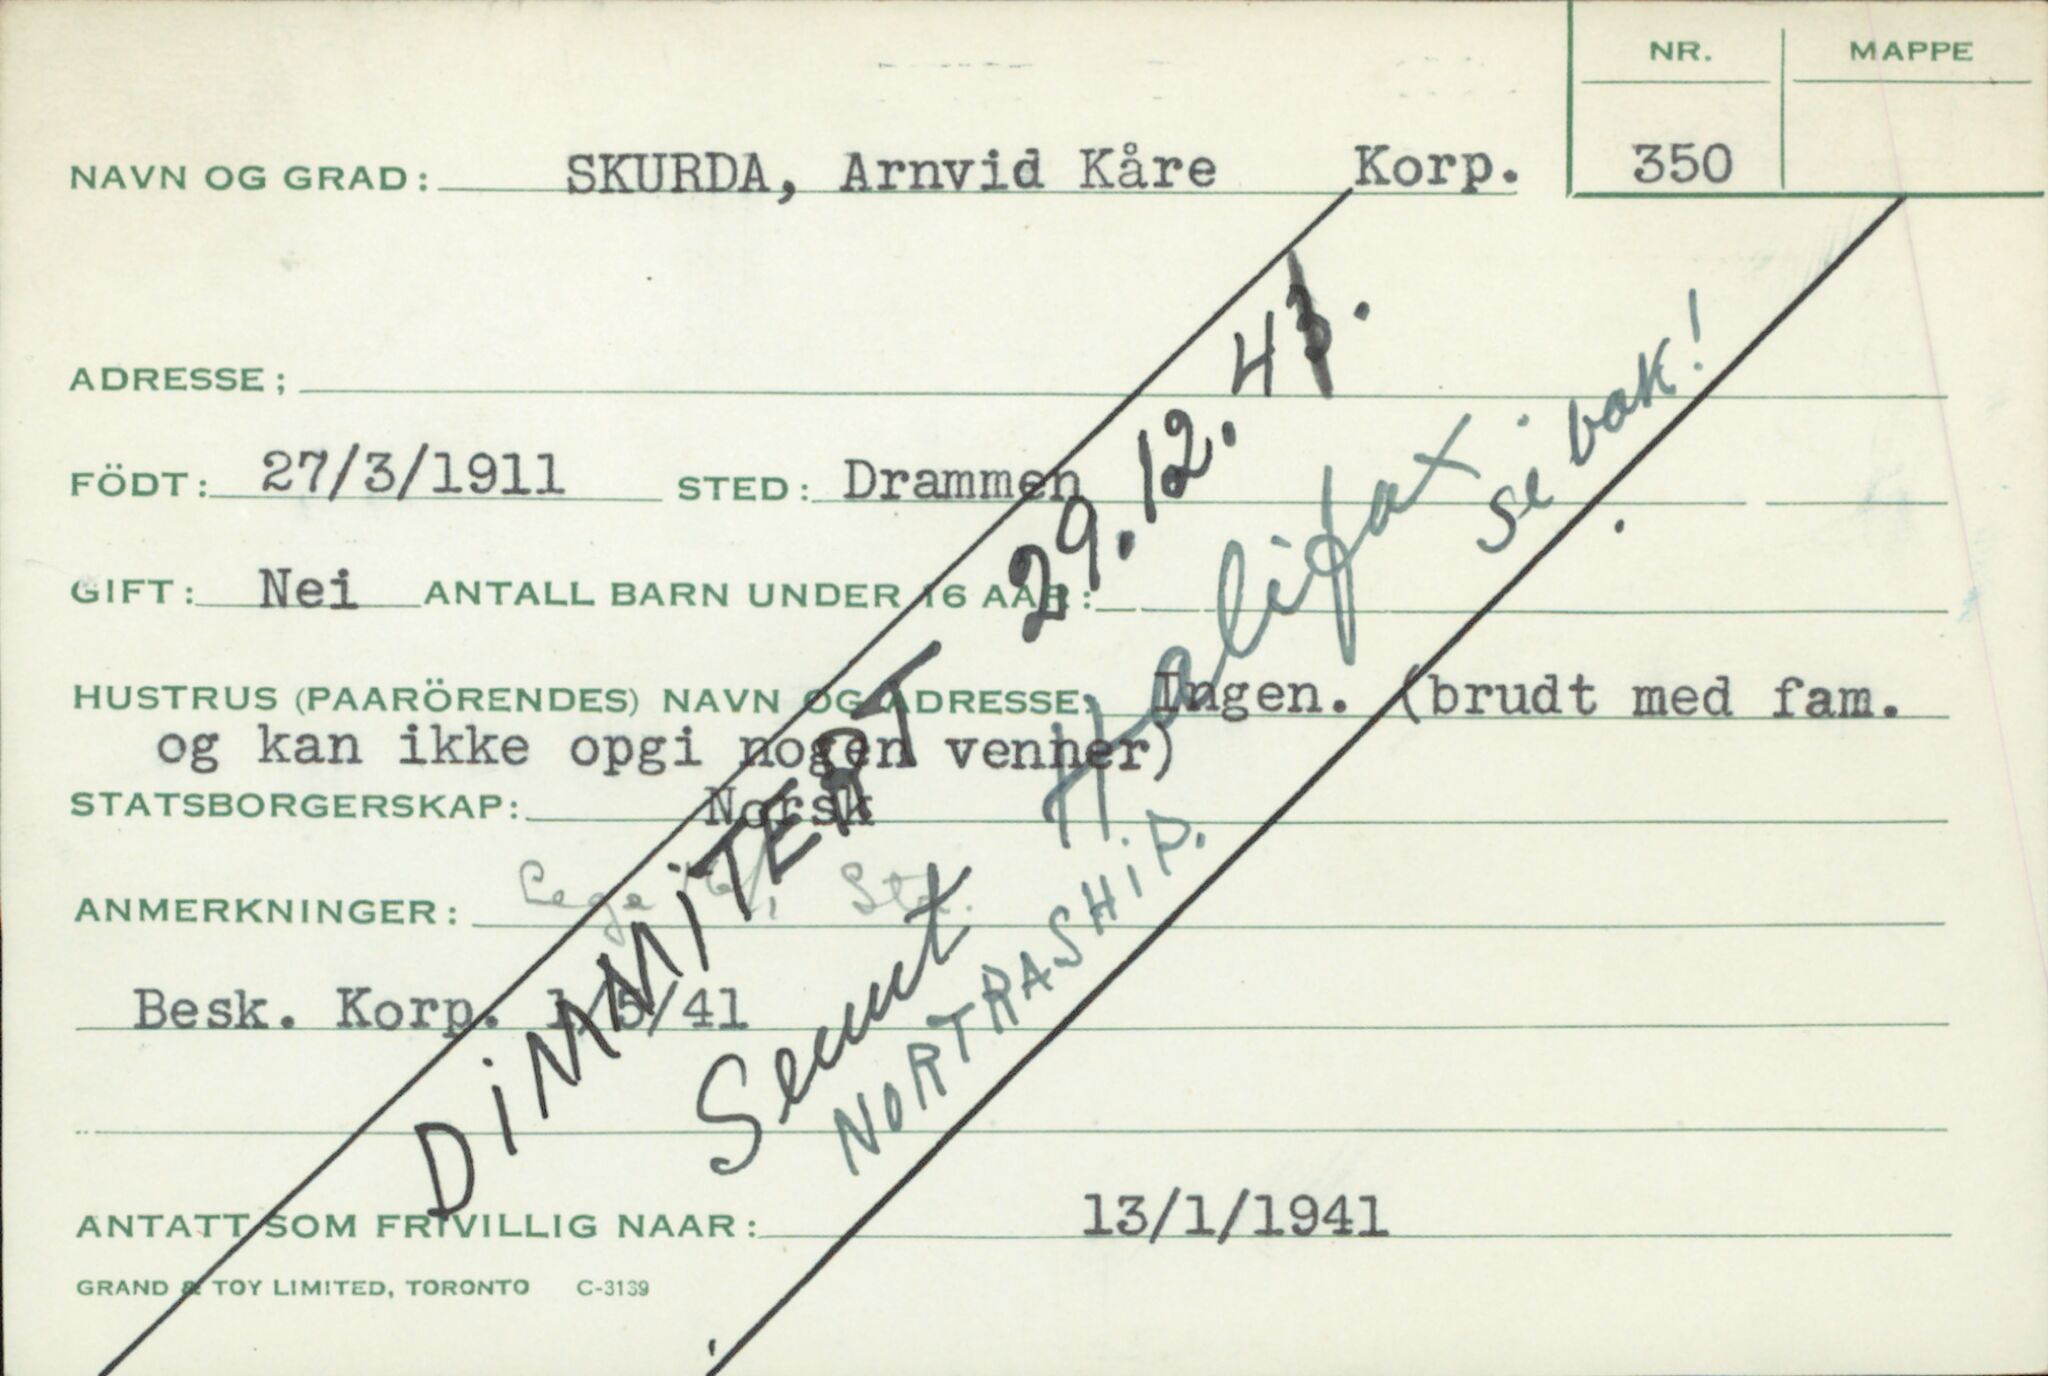 NR. MAPPE
NAVN OG GRAD: SKURDA, Arnvid Kåre Korp. 350
ADRESSE;
FÖDT: 27/3/1911 STED: Drammen
GIFT: Nei ANTALL BARN UNDER 16 AAR:
HUSTRUS (PAARÖRENDES) NAVN OG ADRESSE: Ingen. (brudt med fam.
og kan ikke opgi nogen venner)
STATSBORGERSKAP: Norsk
ANMERKNINGER:
Besk. Korp. 1/5/41
DiMMiTERT 29.12.41.
Halifax
NORTRASHiP.
si bak!
ANTATT SOM FRIVILLIG NAAR: 13/1/1941
GRAND & TOY LIMITED, TORONTO C-3139